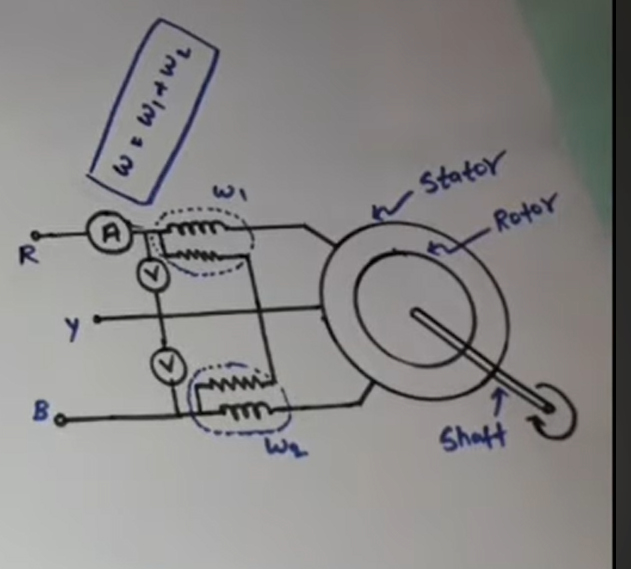 W = W1 + W2
W1
Stator
Rotor
A
R
V
Y
V
B
Shaft
W2